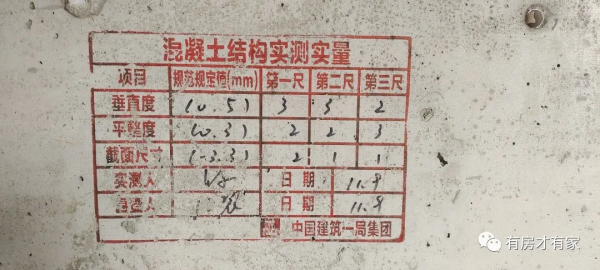 混凝土结构实测实量
项目 规范规定值(mm) 第一尺 第二尺 第三尺
垂直度 (0.5) 3 3 2
平整度 (0.3) 2 2 3
截面尺寸 (-3.3) 2 1 1
实测人 日期 11.9
日期 11.9
中国建筑一局集团
有房才有家